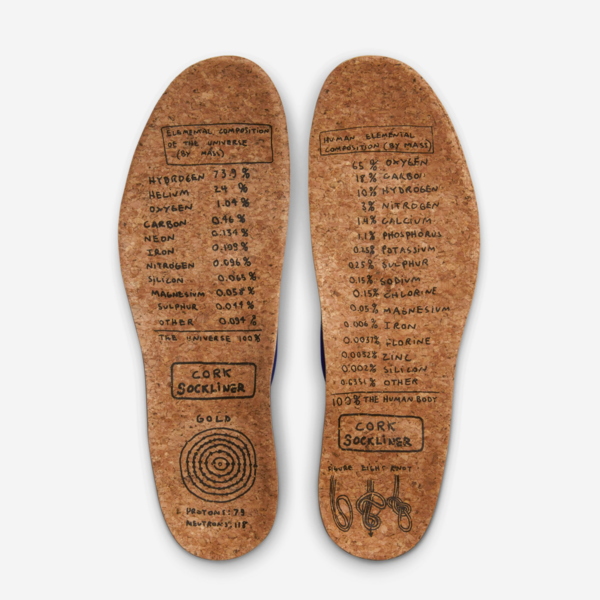 ELEMENTAL COMPOSITION
OF THE UNIVERSE
(BY MASS)
HYDROGEN 73.9 %
HELIUM 24 %
OXYGEN 1.04 %
CARBON 0.46 %
NEON 0.134 %
IRON 0.109 %
NITROGEN 0.096 %
SILICON 0.065 %
MAGNESIUM 0.058 %
SULPHUR 0.044 %
OTHER 0.094 %
THE UNIVERSE 100%
CORK
SOCKLINER
GOLD
PROTONS: 79
NEUTRONS: 118
HUMAN ELEMENTAL
COMPOSITION (BY MASS)
65 % OXYGEN
18 % CARBON
10 % HYDROGEN
3 % NITROGEN
1.4 % CALCIUM
1.1 % PHOSPHORUS
0.25 % POTASSIUM
0.25 % SULPHUR
0.15 % SODIUM
0.15 % CHLORINE
0.05 % MAGNESIUM
0.006 % IRON
0.0037% FLORINE
0.0032% ZINC
0.002% SILICON
OTHER
100 % THE HUMAN BODY
CORK
SOCKLINER
FIGURE EIGHT KNOT